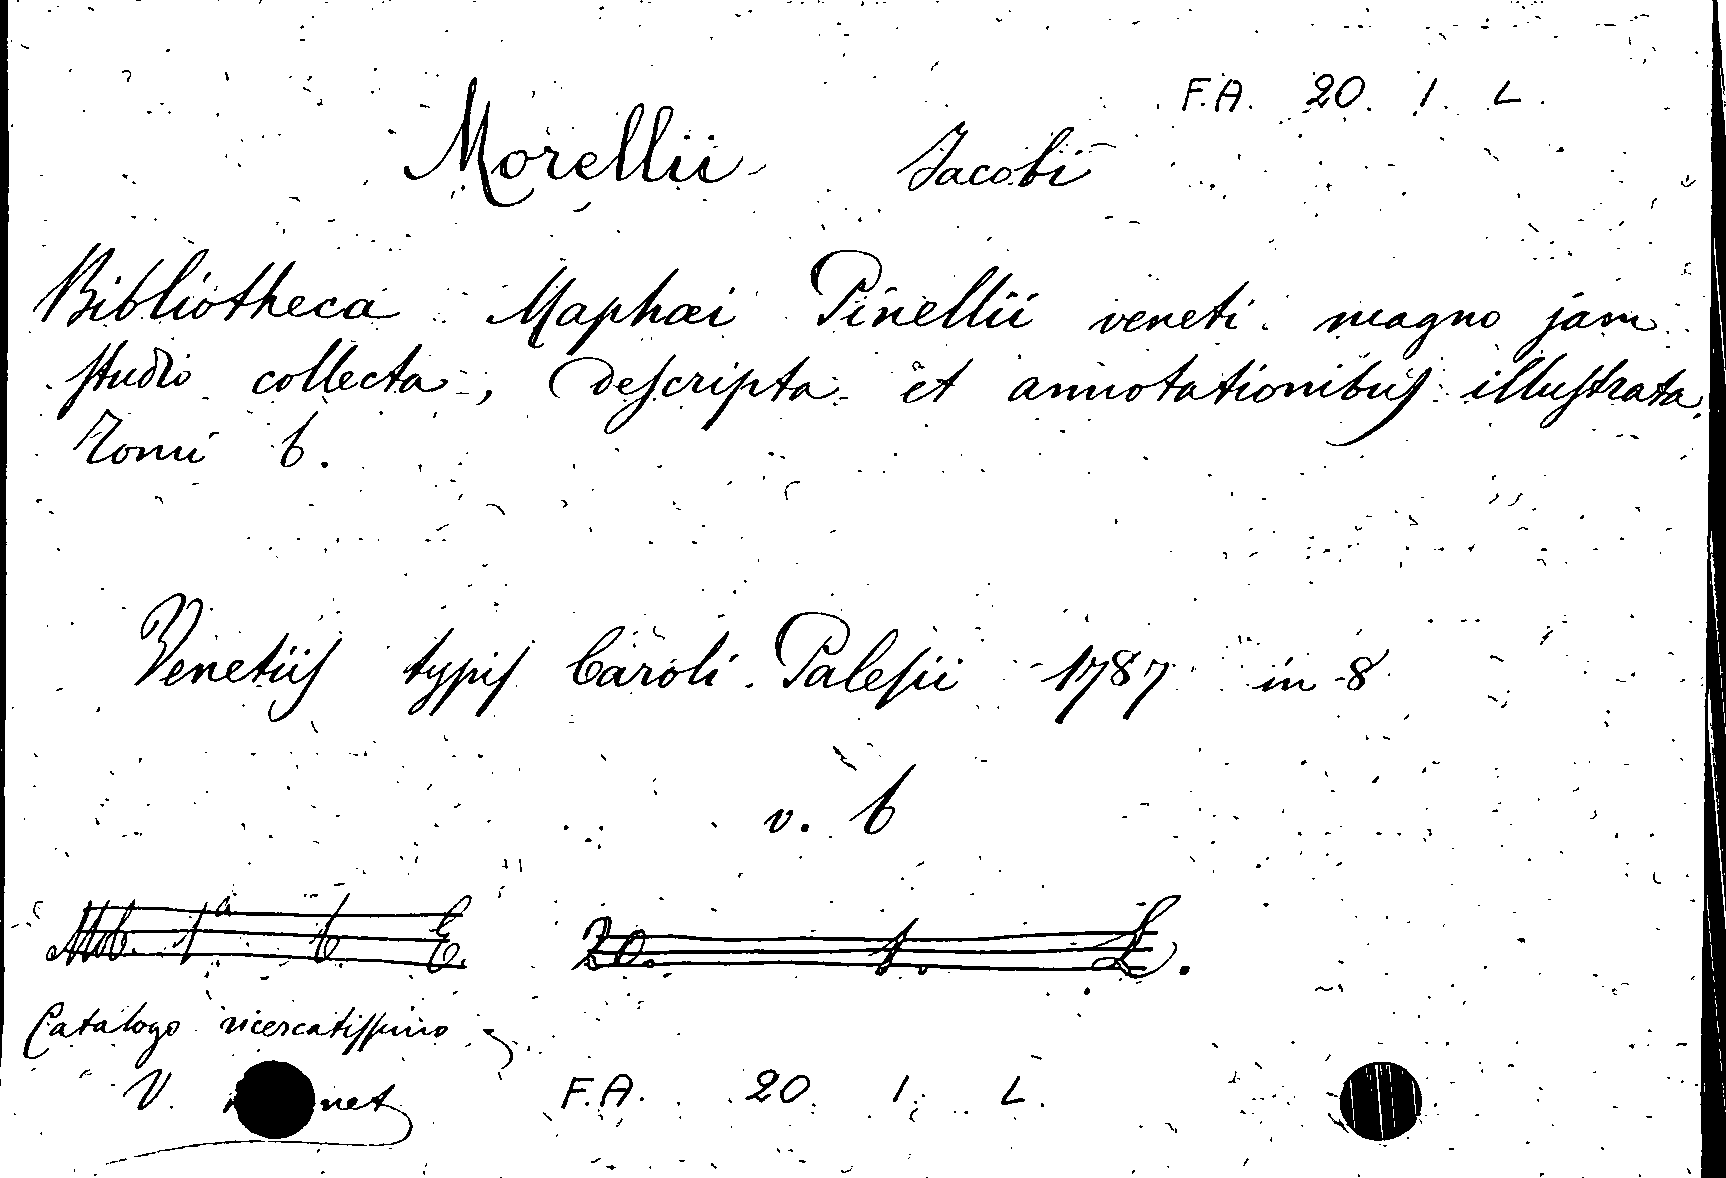 F.A. 20. 1. L.
Morellii Jacobi
Bibliotheca Maphæi Pinellii veneti magno jam
studio collecta, descripta et annotationibus illustrata.
Tomi 6.
Venetiis typis Caroli Palesii 1787 in 8
v. 6
Mob. 1ª 6 E. 20. 1. L.
Catalogo ricercatissimo
V. net F.A. 20 1. L.